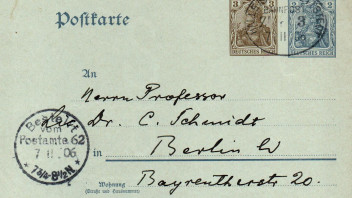 Postkarte
3 3
2 2
DEUTSCHES REICH
DEUTSCHES REICH
An
Herrn Professor
Dr. C. Schmidt
in Berlin W
Wohnung
(Straße und Hausnummer)
Bayreutherstr 20.
Bestellt
vom
Postamte 62
7 11 06
* 7¼-8½N *